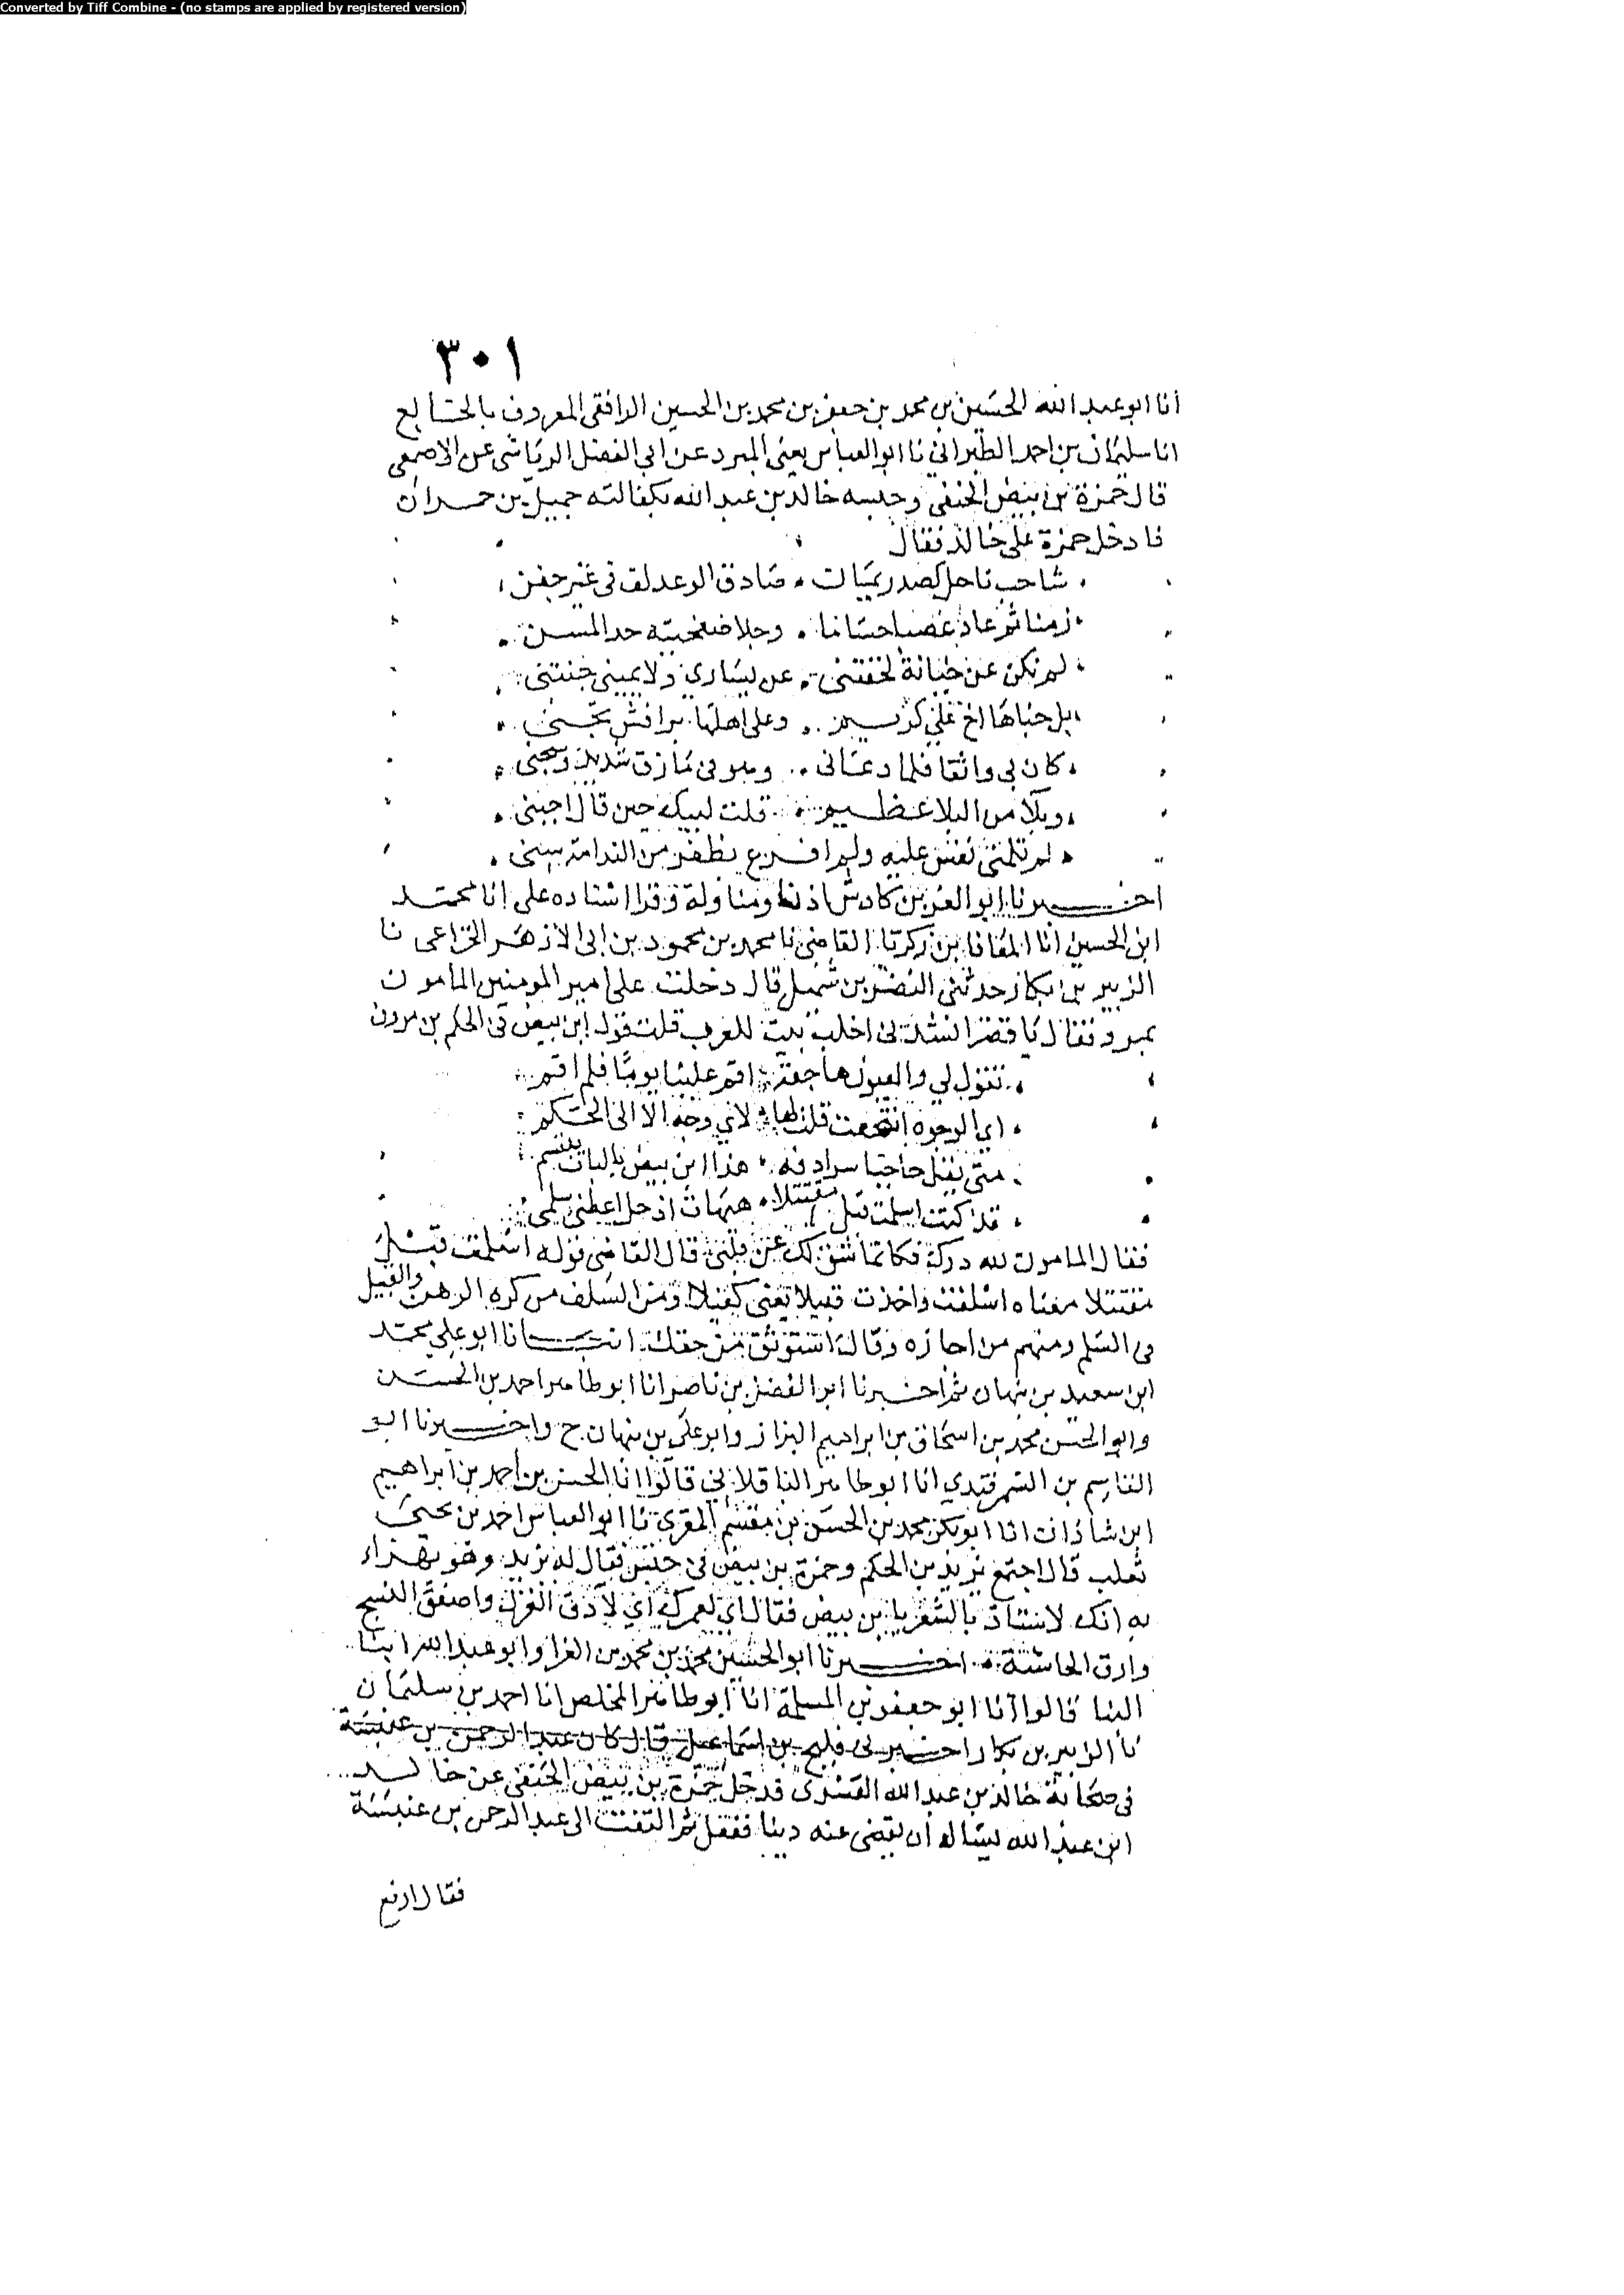 Converted by Tiff Combine - (no stamps are applied by registered version)
٣٠١
أنا ابو عبد الله الحسين بن محمد بن جعفر بن محمد بن الحسين الرافقي المعروف بالخالع
انا سليمان بن احمد الطبراني نا ابو العباس يعني المبرد عن ابي الفضل الرياشي عن الاصمعي
قال حمزة بن بيض الحنفي وحبسه خالد بن عبد الله بكفالته جميل بن حمران
فادخل حمزة على خالد فقال
شاحب ناحل كصدر يمان صادق الوعد لف في غير جفن
زمنا ثم عاد غضبا حساما وجلا صفحتيه حد المسن
لم تكن عن خيانة لحقتني عن يساري ولا يميني جنتني
بل جناها اخ علي كريم وعلى اهلها براقش تجني
كان بي واثقا فلما دعاني وهو في مازق شديد وسجن
وبلا من البلا عظيم قلت لبيك حين قال اجبني
لم تلمني نفسي عليه ولم اقرع بظفر من الندامة سني
اخبرنا ابو العز بن كادش اذنا ومناولة وقرا اسناده علي انا محمد
ابن الحسين انا المعافا بن زكريا القاضي نا محمد بن محمود بن ابي الازهر الخزاعي نا
الزبير بن بكار حدثني النضر بن شميل قال دخلت على امير المومنين المامون
بمرو فقال يا نضر انشدني اخلب بيت للعرب قلت قول ابن بيض في الحكم بن مرون
تقول لي والعيون هاجعة اقم علينا يوما فلم اقم
اي الوجوه انتجعت قلت لها لاي وجه الا الى الحكم
متى يقل حاجبا سرادقه هذا ابن بيض بالباب يبتسم
قد كنت اسلمت قبل مقتبلا هيهات ادخل اعطني سلمي
فقال المامون لله درك فكانما شق لك عن قلبي قال القاضي قوله اسلمت قبل
مقتبلا معناه اسلفت واخذت قبيلا يعني كفيلا ومن السلف من كره الرهن والقبيل
في السلم ومنهم من اجازه وقال استوثق من حقك انبانا ابو علي محمد
ابن سعيد بن نبهان ثم اخبرنا ابو الفضل بن ناصر انا ابو طاهر احمد بن الحسن
وابو الحسن محمد بن اسحاق بن ابراهيم البزاز وابو علي بن نبهان ح واخبرنا ابو
القاسم بن السمرقندي انا ابو طاهر الباقلاني قالوا انا الحسن بن احمد بن ابراهيم
ابن شاذان انا ابو بكر محمد بن الحسن بن مقسم المقري نا ابو العباس احمد بن يحيى
ثعلب قال اجتمع يزيد بن الحكم وحمزة بن بيض في حبس فقال له يزيد وهو يهزاء
به انك لاستاذ بالشعر يا ابن بيض فقال اي لعمرك اي لادق الغزل واصفق النسج
وارق الحاشية اخبرنا ابو الحسين محمد بن محمد بن الفرا وابو عبد الله ابنا
البنا قالوا انا ابو جعفر بن المسلمة انا ابو طاهر المخلص انا احمد بن سليمان
نا الزبير بن بكار اخبرني فليح بن اسماعيل قال كان عبد الرحمن بن عنبسة
في صحابة خالد بن عبد الله القسري فدخل حمزة بن بيض الحنفي عن خالد
ابن عبد الله يساله ان يقضي عنه دينا ففعل ثم التفت الى عبد الرحمن بن عنبسة
فقال ارفع